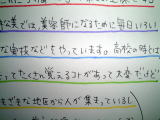 業では、美容師になるために毎日いろい
な実技などをやっています。高校の時とは
ってたくさん覚えるコトがあって大変だけど
まざまな地区から人が集まっているし